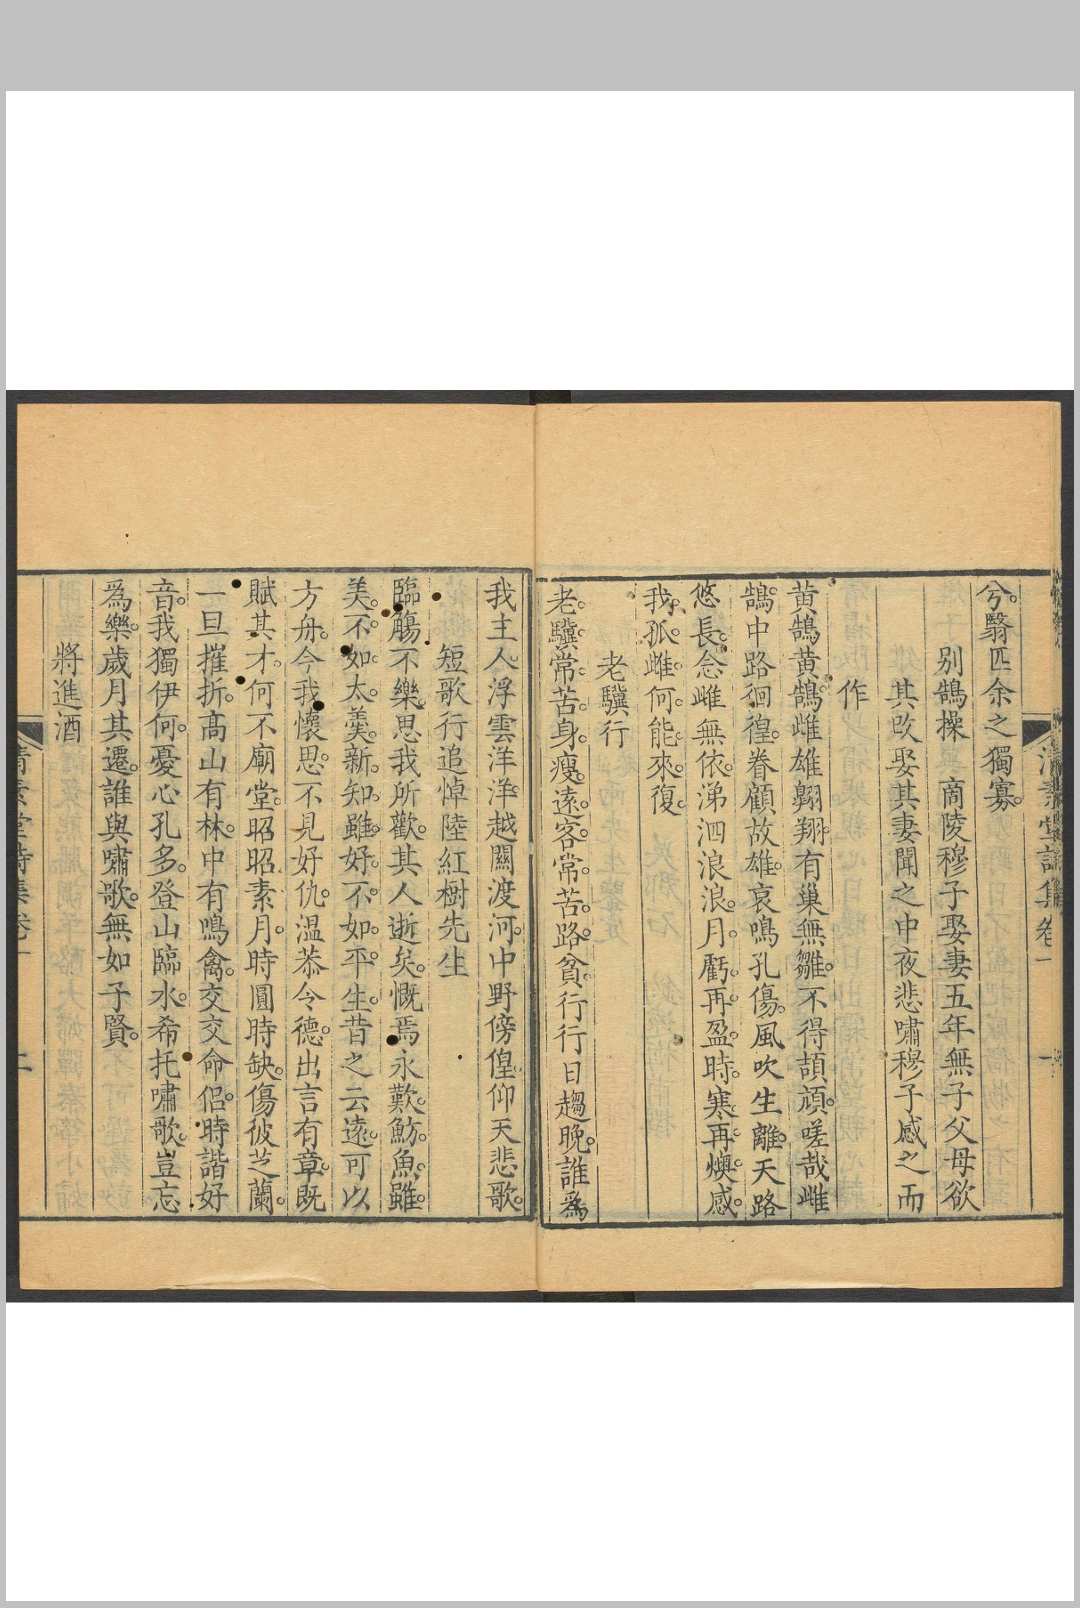 清素堂詩集卷一
一
兮翳匹余之獨寡
別鵠操　商陵穆子娶妻五年無子父母欲
其改娶其妻聞之中夜悲嘯穆子感之而
作
黄鵠黄鵠雌雄翱翔有巢無雛不得頡頏嗟哉雌
鵠中路徊徨眷顧故雄哀鳴孔傷風吹生離天路
悠長念雌無依涕泗浪浪月虧再盈時寒再燠感
我孤雌何能來復
老驥行
老驥常苦身瘦遠客常苦路貧行行日趨晚誰為
我主人浮雲洋洋越關渡河中野傍偟仰天悲歌
短歌行追悼陸紅樹先生
臨觴不樂思我所歡其人逝矣慨焉永歎魴魚雖
美不如太羹新知雖好不如平生昔之云遠可以
方舟今我懷思不見好仇溫恭令德出言有章既
賦其才何不廟堂昭昭素月時圓時缺傷彼芝蘭
一旦摧折高山有林中有鳴禽交交命侶時諧好
音我獨伊何憂心孔多登山臨水希托嘯歌豈忘
爲樂歲月其遷誰與嘯歌無如子賢
將進酒
清素堂詩集卷一
二